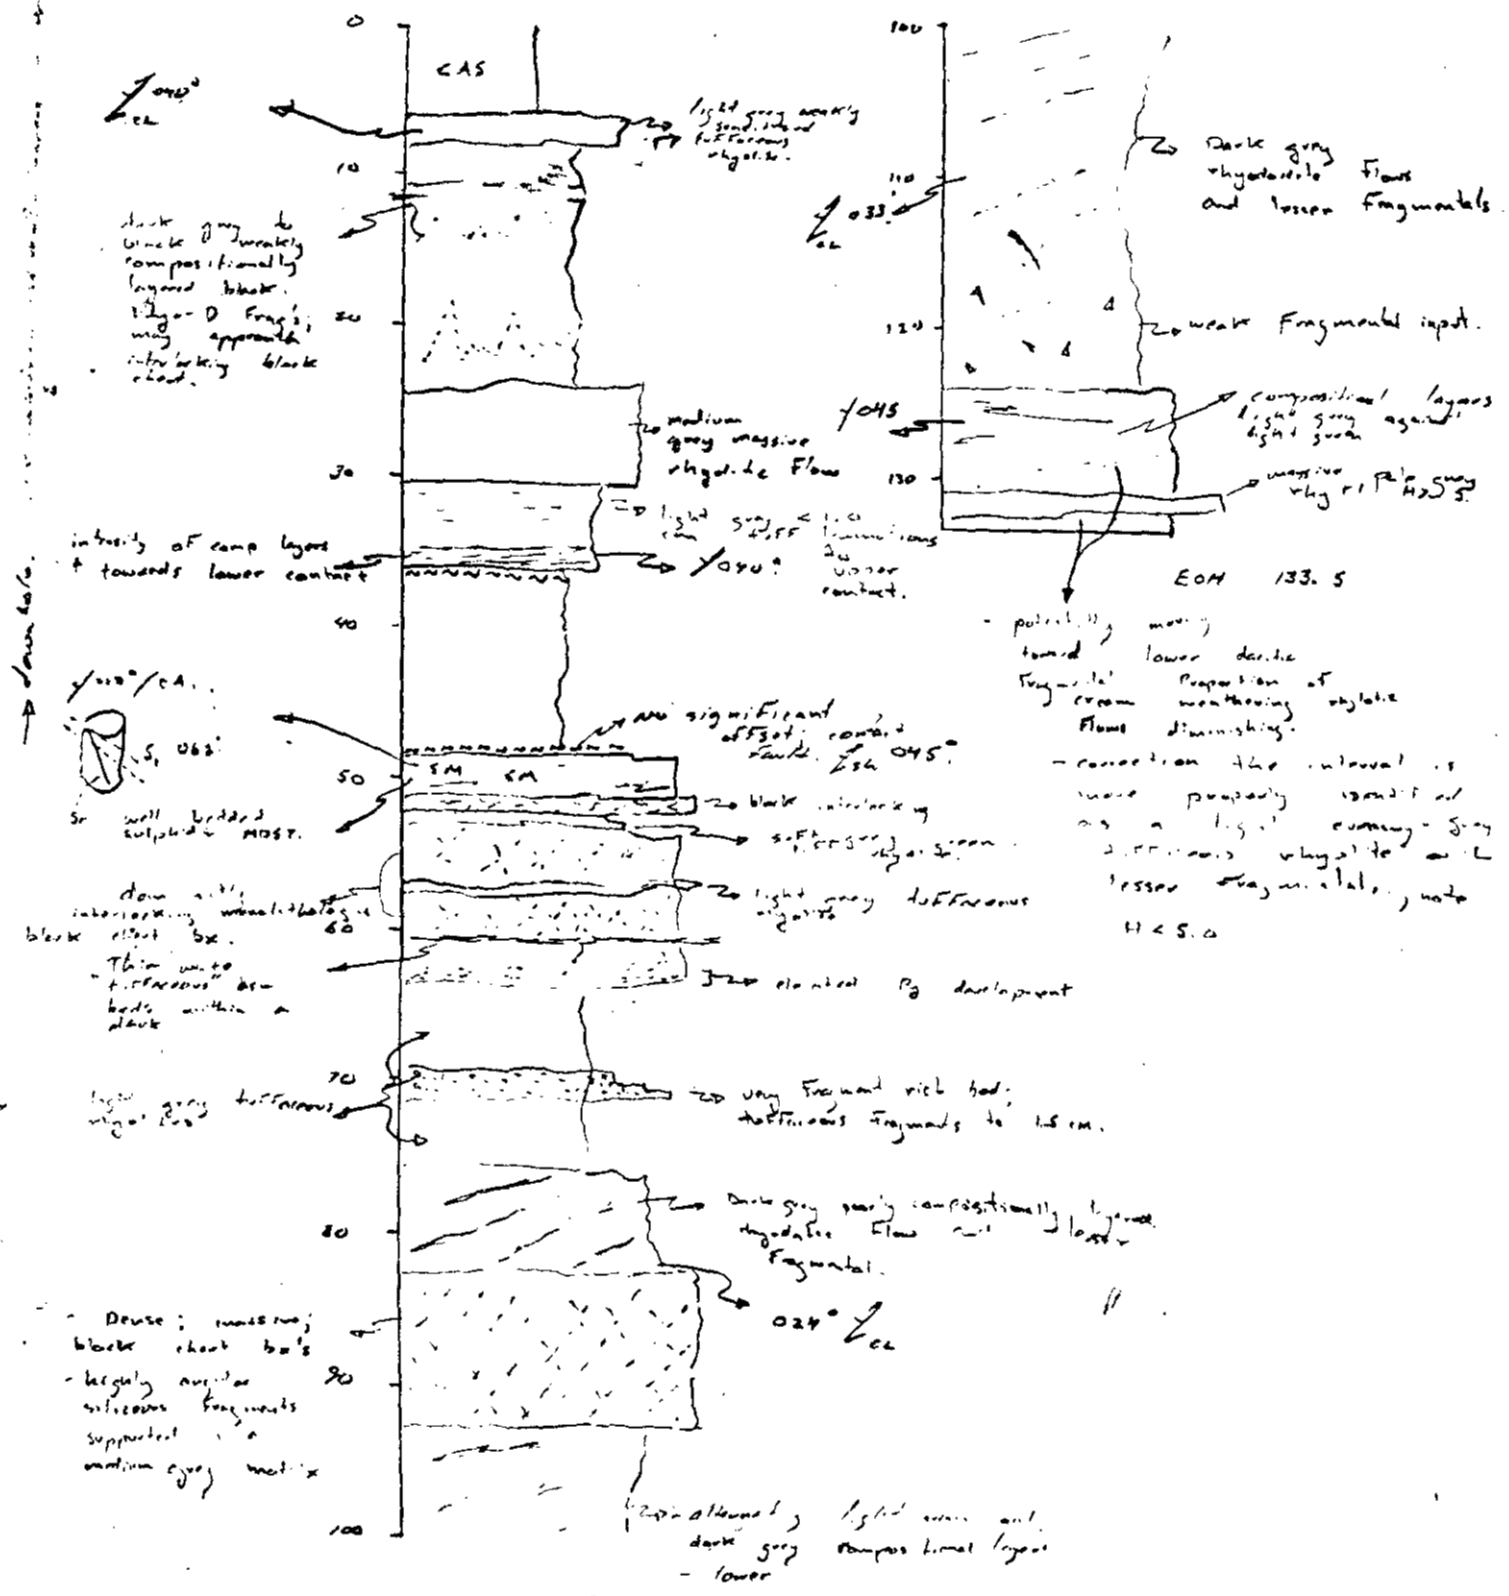 0
CAS
040°
CA
light grey weakly
tuffaceous
rhyolite.
10
dark grey to
black weakly
compositionally
layered black.
Rhyo-D Frag's;
may approach
interlocking black
chert.
20
medium
grey massive
rhyolite Flow
30
light grey < 1.0
cm tuff laminations
to
upper
contact.
intensity of comp layers
↑ towards lower contact
040°
40
→ down hole.
/CA.
S, 063°
So well bedded
sulphidic MDST.
No significant
offset; contact
Fault. 045°
50
SM SM
black interlocking
softer grey green
light grey tuffaceous
rhyolite
interlocking monolithologic
black chert bx.
60
Thin white
"tuffaceous"
beds within a
dark
elevated Py development
70
light grey tuffaceous
very Fragment rich bed;
tuffaceous Fragments to 1.5 cm.
80
Dark grey poorly compositionally layered
rhyodacite Flow unit lesser
Fragmental.
024°
CA
- Dense; massive;
black chert bx's
- highly angular
siliceous fragments
supported in a
medium grey matrix
90
100
alternating light and
dark grey compositional layers
- lower
100
Dark grey
rhyodacite Flows
and lesser Fragmentals.
110
033°
CA
120
weak Fragmental input.
045
compositional layers
light grey against
light green
130
massive grey
EOH 133.5
- potentially moving
toward lower dacitic
Fragmental Proportion of
cream weathering rhyolitic
Flows diminishing.
- correction the interval is
more properly identified
as a light creamy-grey
tuffaceous rhyolite with
lesser Fragmentals, note
H < 5.0